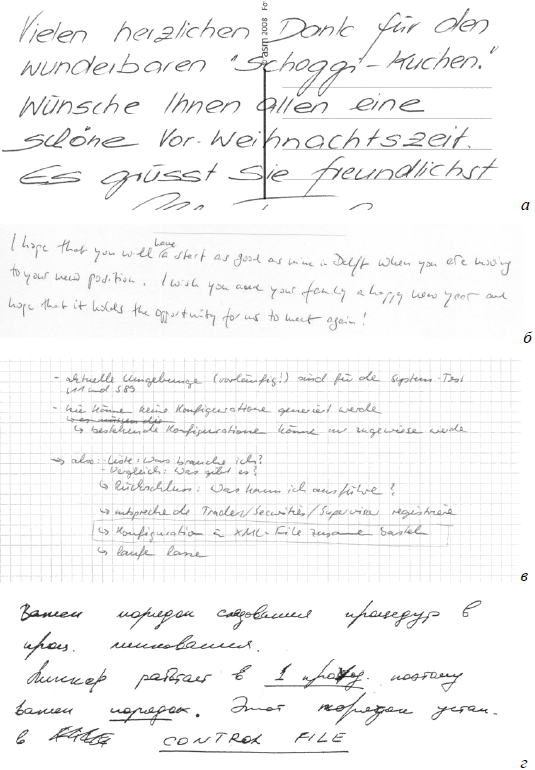 Vielen herzlichen Dank für den
wunderbaren "Schoggi-Kuchen."
Wünsche Ihnen allen eine
schöne Vor-Weihnachtszeit.
Es grüsst Sie freundlichst
© asm 2008 Fo
а
I hope that you will have a start as good as mine in Delft when you are moving
to your new position. I wish you and your family a happy new year and
hope that it holds the opportunity for us to meet again!
б
- aktuelle Umgebunge (vorläufig!) sind für de System-Test
S11 und S89
- hie könne keine Konfiguratione generiert werde
↳ bestehende Konfiguratione könne nur zugewiese werde
→ also: - Liste: Was brauche ich?
- Vergleich: Was gibt es?
↳ Rückschluss: Was kann ich ausführe?
↳ entspreche de Trader/Securities/Supervisor registriere
↳ Konfiguration in XML-File zusamme bastel
↳ laufe lasse
в
Важен порядок следования процедур в
прог. линкования.
Линкер работает в 1 проход. поэтому
важен порядок. Этот порядок устан.
в CONTROL FILE
г